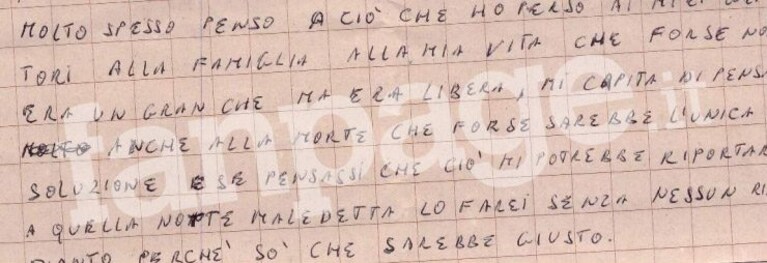 MOLTO SPESSO PENSO A CIÒ CHE HO PERSO AI MIEI
TORI ALLA FAMIGLIA ALLA MIA VITA CHE FORSE NO
ERA UN GRAN CHE MA ERA LIBERA, MI CAPITA DI PENSA
MOLTO ANCHE ALLA MORTE CHE FORSE SAREBBE L'UNICA
SOLUZIONE E SE PENSASSI CHE CIÒ MI POTREBBE RIPORTAR
A QUELLA NOTTE MALEDETTA LO FAREI SENZA NESSUN RI
PIANTO PERCHE' SO' CHE SAREBBE GIUSTO.
fanpage.it